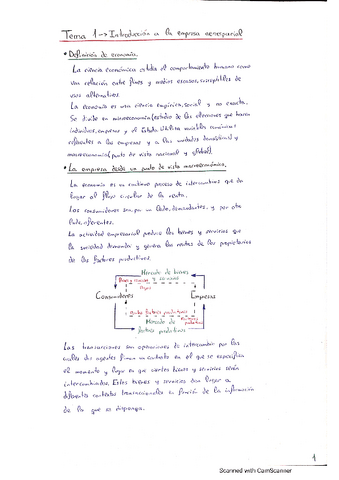 Tema 1 → Introducción a la empresa aeroespacial
• Definición de economía.
La ciencia económica estudia el comportamiento humano como
una relación entre fines y medios escasos, susceptibles de
usos alternativos.
La economía es una ciencia empírica, social y no exacta.
Se divide en microeconomía (estudio de las elecciones que hacen
individuos, empresas y el Estado. Utiliza variables económicas
referentes a las empresas y a las unidades domésticas) y
macroeconomía (punto de vista nacional y global).
• La empresa desde un punto de vista macroeconómico.
La economía es un continuo proceso de intercambios que da
lugar al flujo circular de la renta.
Los consumidores son, por un lado, demandantes, y por otro
lado, oferentes.
La actividad empresarial produce los bienes y servicios que
la sociedad demanda y genera las rentas de los propietarios
de los factores productivos.
Mercado de bienes
y servicios
Consumidores Empresas
factores productivos
Mercado de
factores productivos
Las transacciones son operaciones de intercambio por las
cuales dos agentes firman un contrato en el que se especifica
el momento y lugar en que ciertos bienes y servicios serán
intercambiados. Estos bienes y servicios dan lugar a
diferentes contextos transaccionales en función de la información
de la que se disponga.
1
Scanned with CamScanner